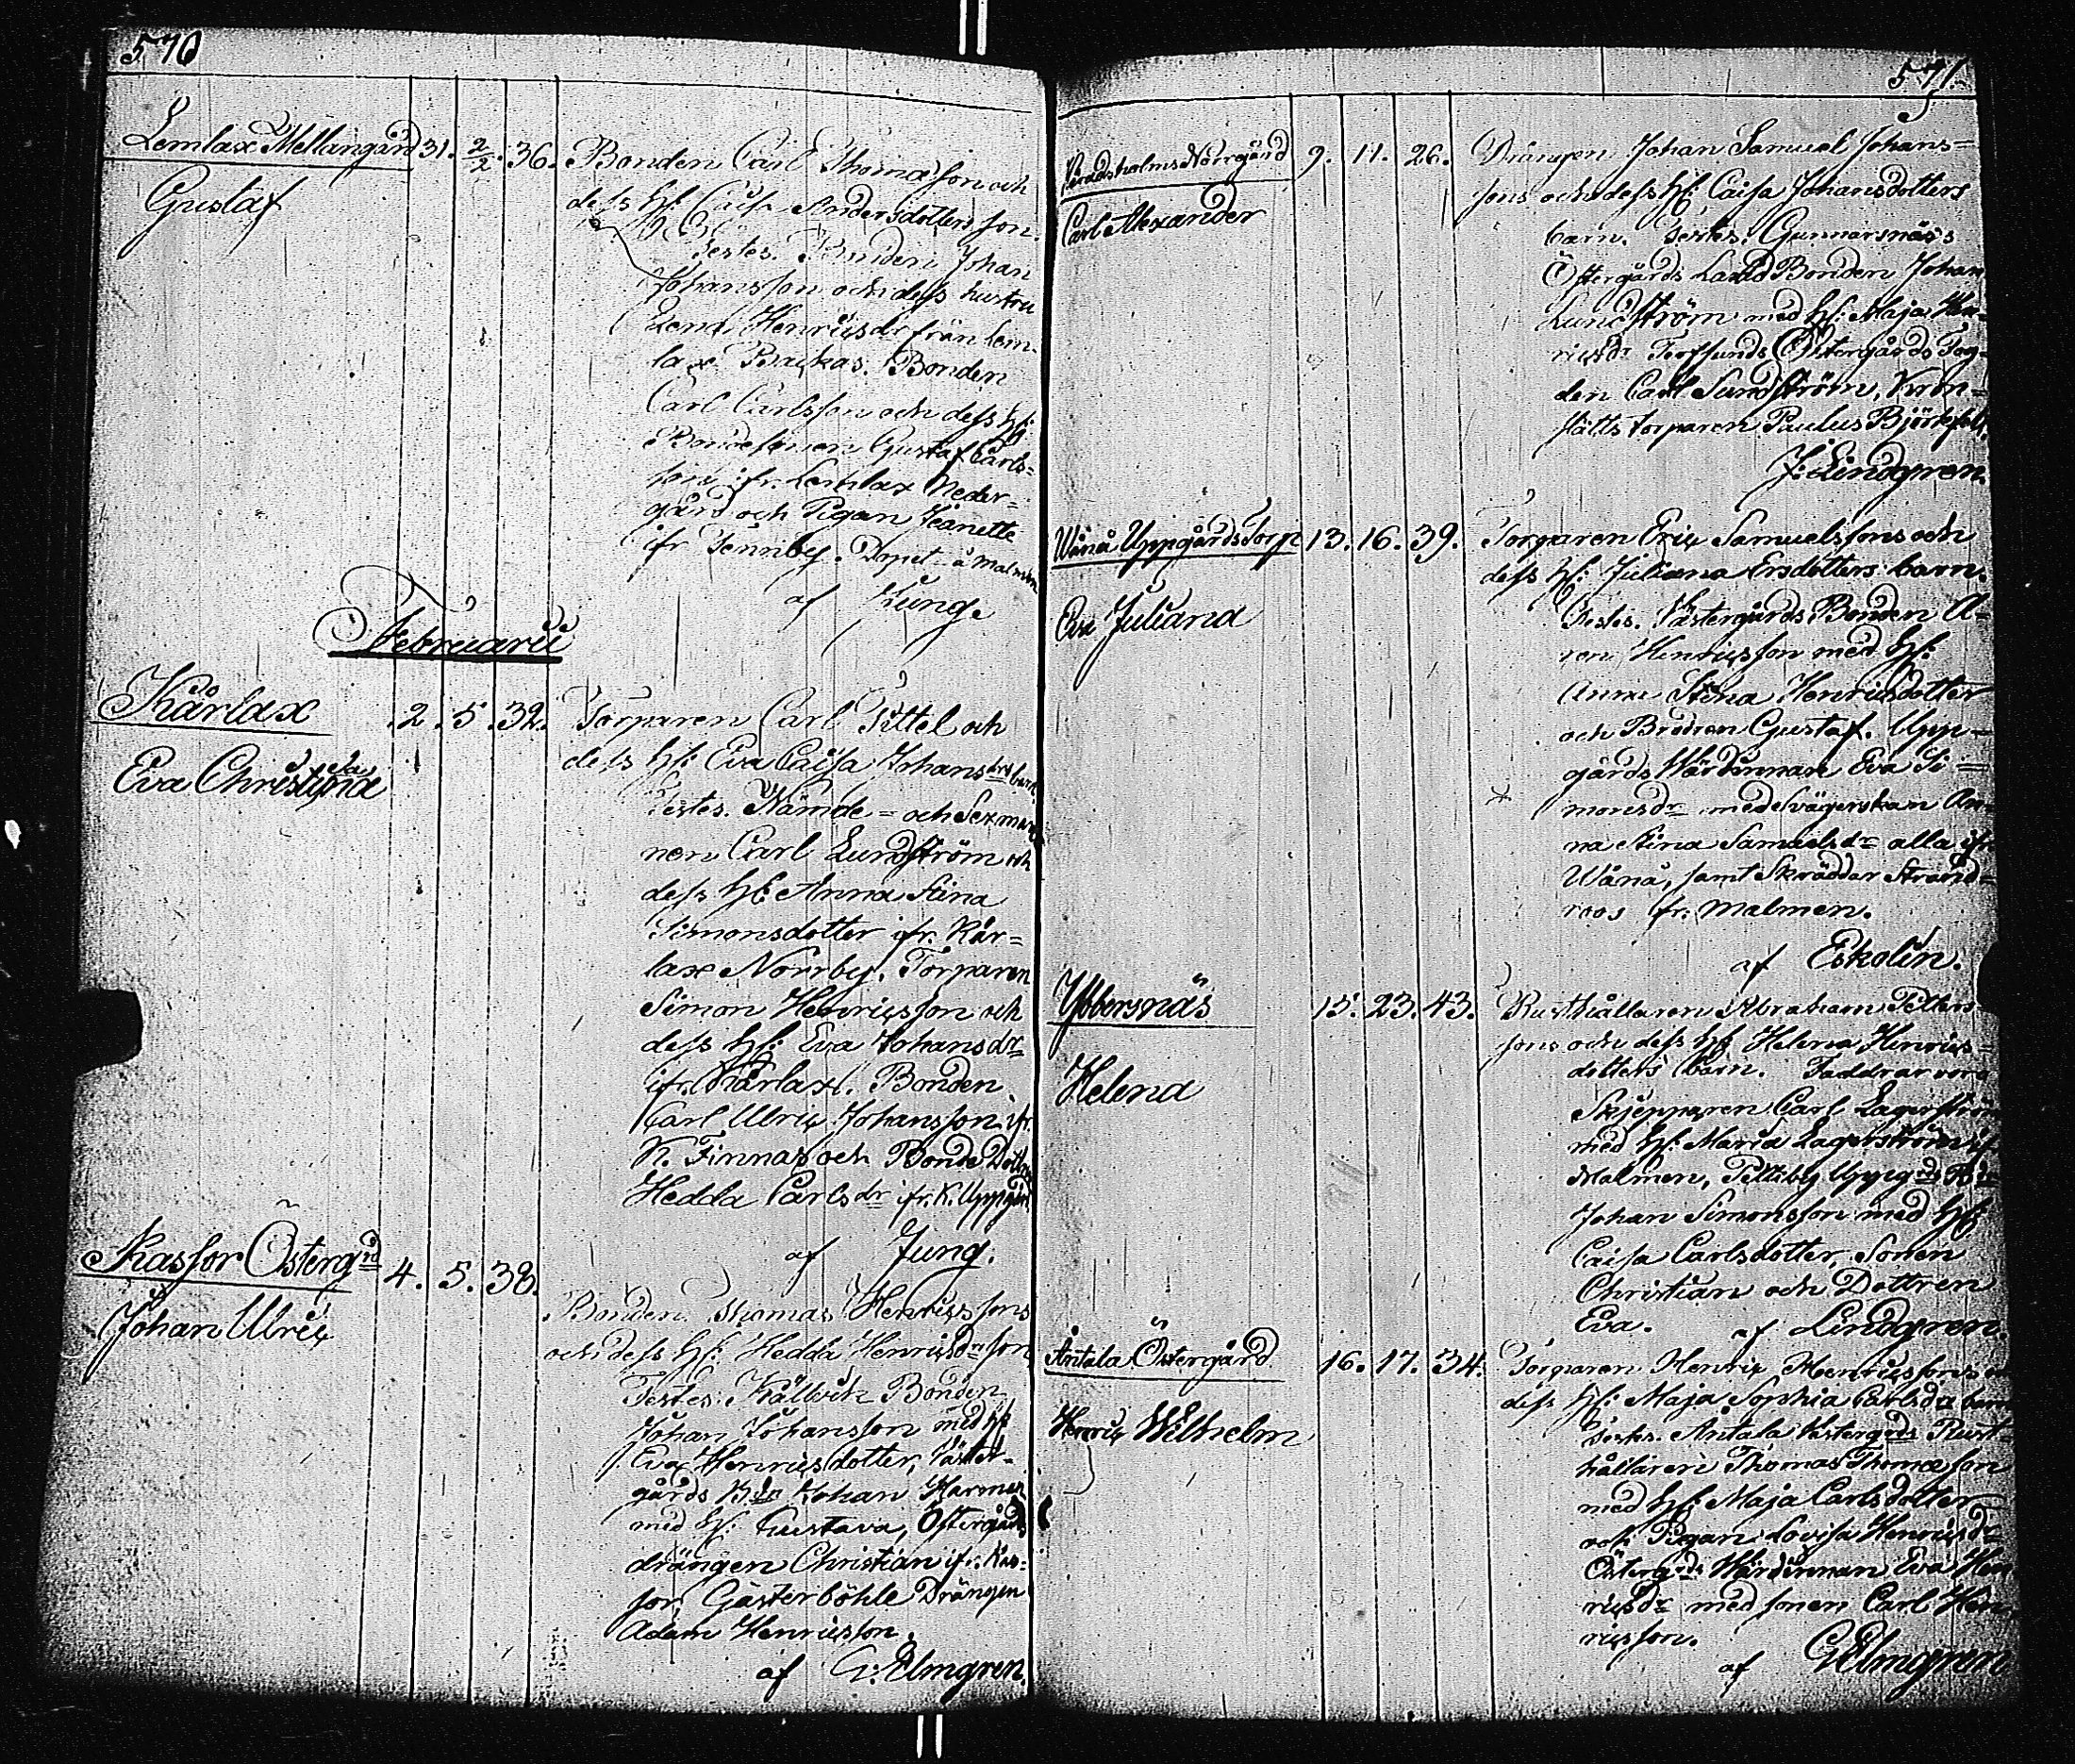 570
Lemlax Mellangård 31. 2/2. 36. Bonden Carl Thomæson och
Gustaf
dess h: Caisa Andersdotters son.
Testes. Bonden Johan
Johansson och dess hustru
Lena Henricsdr från Lem-
lax Backas. Bonden
Carl Carlsson och dess h:
Bondesonen Gustaf Carls=
son ifr. Lemlax Neder=
gård och Pigan Jeanette
ifr Tennby. Döpet å Malmen
af Jung.
Februarii
Kårlax .2. 5. 32. Torparen Carl Pittel och
Eva Christina
dess h: Eva Caisa Johans barn.
Testes. Nämde= och Sexman
nen Carl Lundström och
dess h: Anna Stina
Simonsdotter ifr. Kår=
lax Norrby, Torparen
Simon Henricsson och
dess h: Eva Johansdr
ifr. Kårlax. Bonden
Carl Ulric Johansson ifr.
K. Finnas och Bonde Dottren
Hedda Carlsdr ifr. K. Uppgård
af Jung.
Kassor Östergrd 4. 5. 38. Bonden Thomas Henricssons
Johan Ulric
och dess h: Hedda Henricsdrs son
Testes. Källvik Bonden
Johan Johansson med h:
Eva Henricsdotter, Väster-
gårds Bdn Johan
med h: Gustava, Östergårds
drängen Christian ifr. Kas=
sor Gästerböhle Drängen
Adam Henricsson.
af G: Elmgren.
571.
Norrgård 9. 11. 26. Drängen Johan Samuel Johans=
Carl Alexander
sons och dess h: Caisa Johansdotters
barn. Testes. Gunnarsnäss
Östergårds Landbonden Johan
Lundström med h: Maja Hen-
ricsdr Östergårds Tog-
den Carl Sundström, Kron=
slätts torparen Paulus
J: Lindgren.
Wånå Uppgårds Torp 13. 16. 39. Torparen Eric Samuelssons och
Eva Juliana
dess h: Juliana Ersdotters barn.
Testes. Västergårds Bonden A-
Henricsson med h:
Anna Stina Henricsdotter
och Brodren Gustaf. Upp-
gårds Wärdinnan Eva Si=
monsdr med Svägerskan An-
na Stina Samuelsdr alla ifr
Wånå, samt Skräddar Strand=
roos fr. Malmen.
af Eskolin.
Ybbersnäs 15. 23. 43. Rusthållaren Abraham Petters
Helena
sons och dess h: Helena Henrics=
dotters barn. Faddrar voro
Skepparen Carl Lagerström
med h: Maria Lagerström if.
Malmen, Pettiby Uppgrds
Johan Simonsson med h:
Caisa Carlsdotter, Sonen
Christian och Dottren
Eva. af Lindgren.
Antala Östergård 16. 17. 34. Torparen Henric Henricssons
Henric Wilhelm
dess h: Maja Sophia Carlsdrs barn
Testes. Antala Västergrds Rust-
hållaren Thomas Thomæson
med h: Maja Carlsdotter
och Pigan Lovisa Henricsdr
Östergrds Wärdinnan Eva Hen
ricsdr med sonen Carl Hen
ricsson.
af G Elmgren